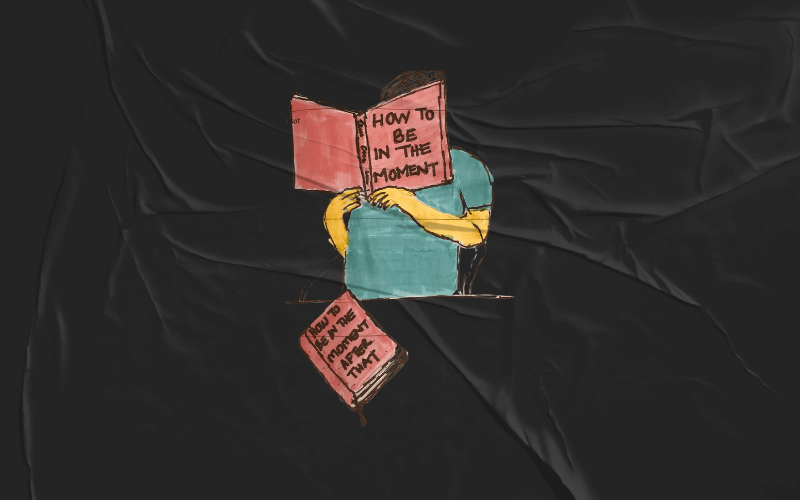 HOW TO
BE
IN THE
MOMENT
HOW TO
BE IN THE
MOMENT
AFTER
THAT